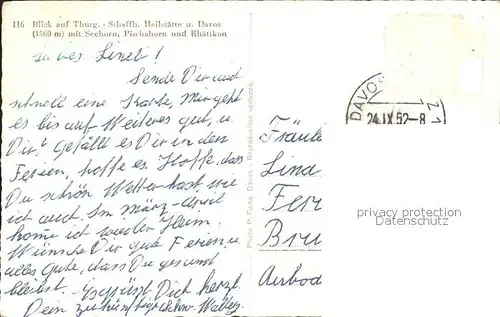 116 Blick auf Thurg. - Schaffh. Heilstätte u. Davos
(1560 m) mit Seehorn, Pischahorn und Rhätikon
Liebes Lineli!
Sende Dir auch
schnell eine Karte, Mir geht
es bis auf Weiteres gut, u.
Dir? Gefällt es Dir in den
Ferien, hoffe es. Hoffe, dass
Du schön Wetter hast, wie
ich auch. Im März-April
komme ich wieder Heim.
Wünsche Dir gute Ferien u.
alles Gute, dass Du gesund
bleibst. Es grüsst Dich herzl.
Dein zukünftiger Schw.
Photo
Davos
DAVOS
24.IX.52-8
Fräule
Lina
Fer
Bru
privacy protection
Datenschutz